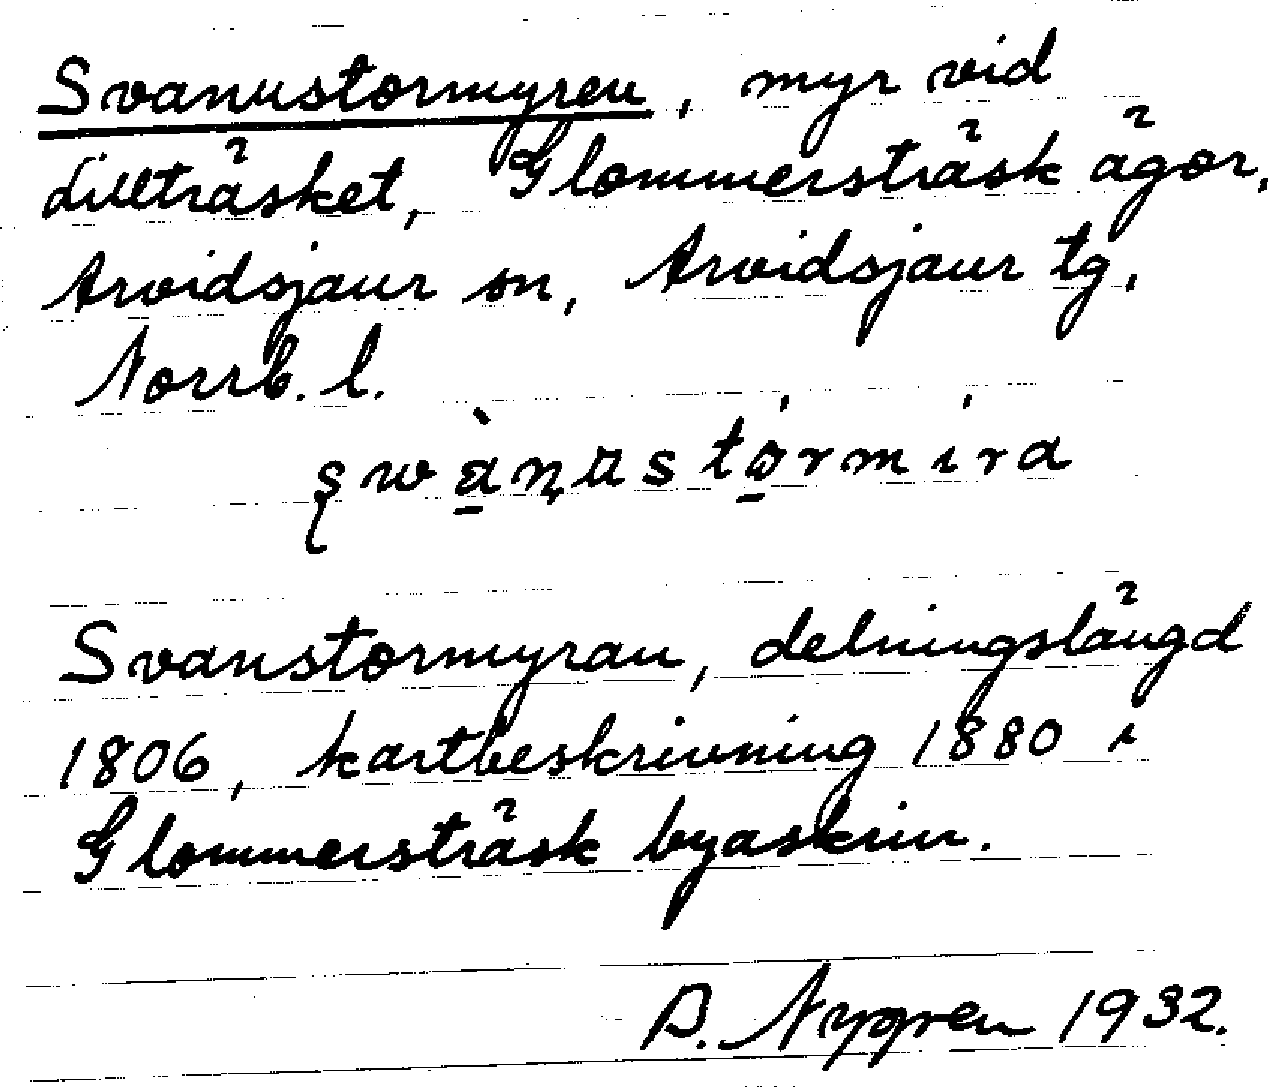 Svanustormyren, myr vid
Lillträsket, Glommersträsk ägor,
Arvidsjaur sn, Arvidsjaur tg,
Norrb. l.
Svanstormyran, delningslängd
1806, kartbeskrivning 1880 i
Glommersträsk byaskrin.
A. Nygren 1932.